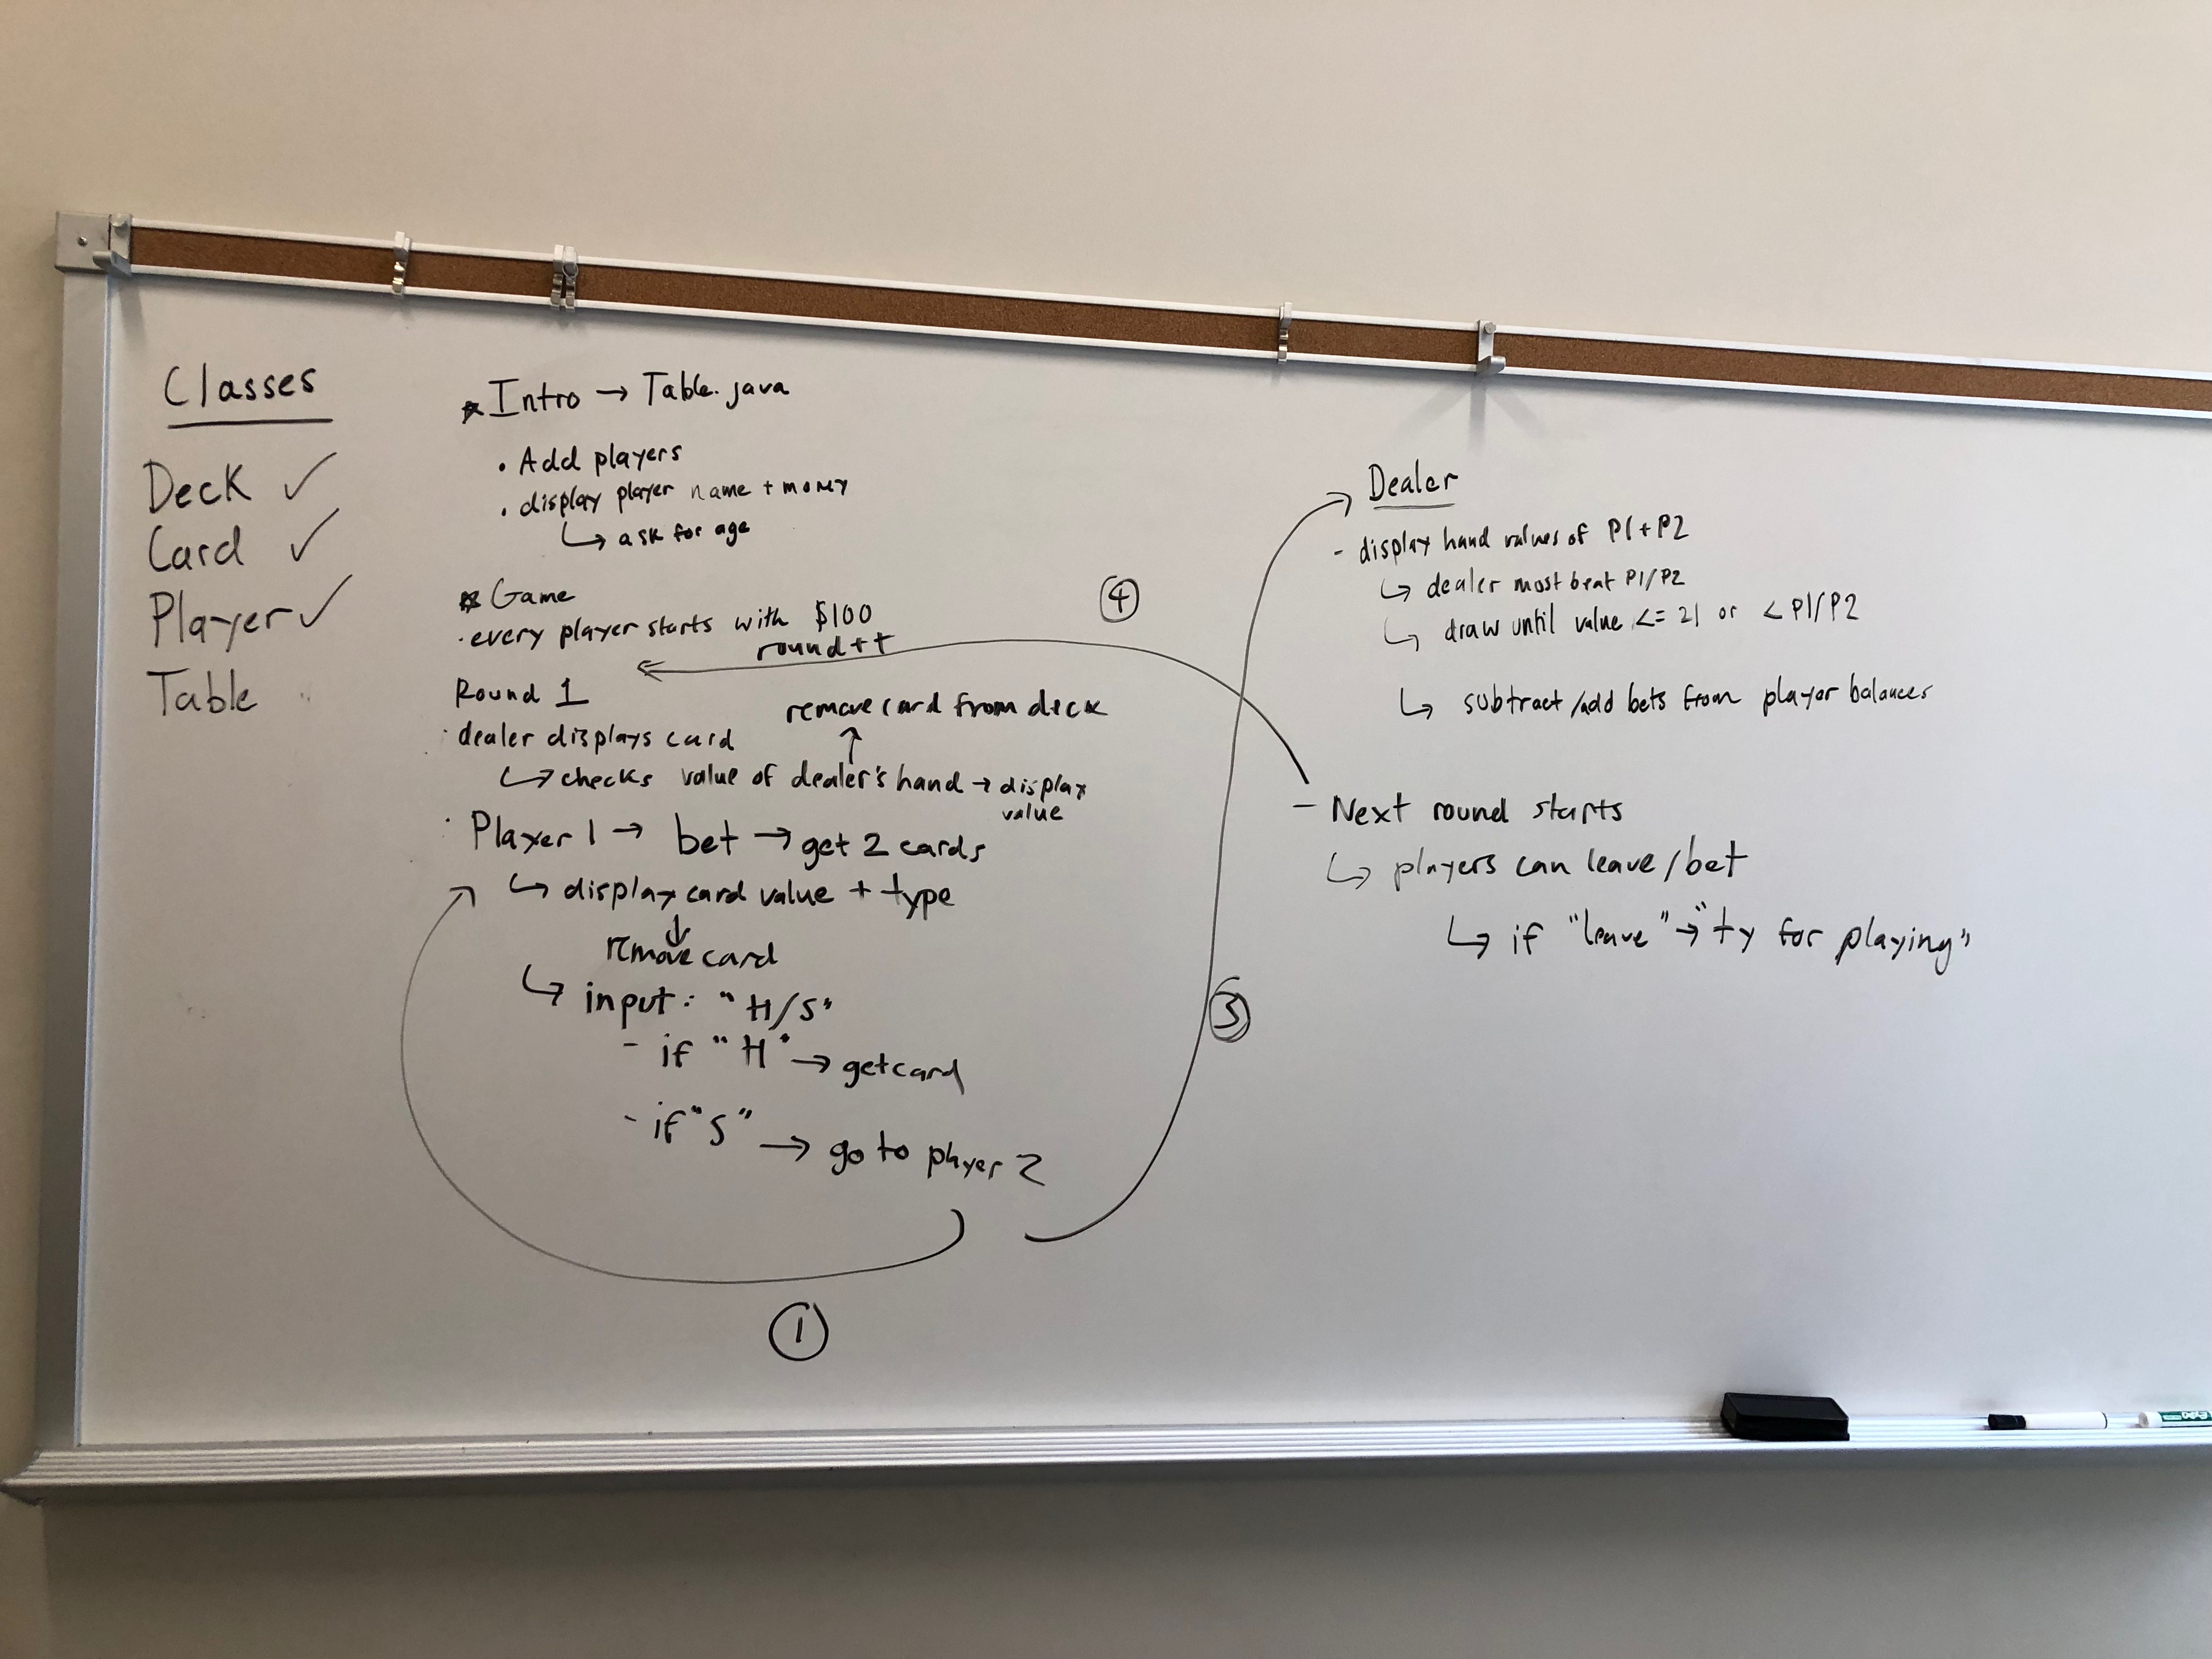 Classes
Deck ✓
Card ✓
Player ✓
Table
* Intro → Table.java
• Add players
• display player name + money
↳ ask for age
* Game
• every player starts with $100
round++
Round 1
remove card from deck
↑
• dealer displays card
↳ checks value of dealer's hand → display
value
• Player 1 → bet → get 2 cards
↳ display card value + type
↓
remove card
↳ input: "H/S"
- if "H" → getcard
- if "S" → go to player 2
①
③
④
Dealer
- display hand values of P1+P2
↳ dealer most beat P1/P2
↳ draw until value <= 21 or < P1/P2
↳ subtract/add bets from player balances
- Next round starts
↳ players can leave/bet
↳ if "leave" → "ty for playing"